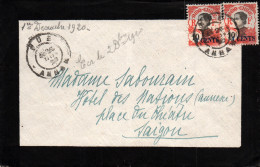 1er Décembre 1920
HUE
ANNAM
CENTS
CENTS
Madame Sabourain
Hôtel des Nations (annexe)
place du théâtre
Saïgon